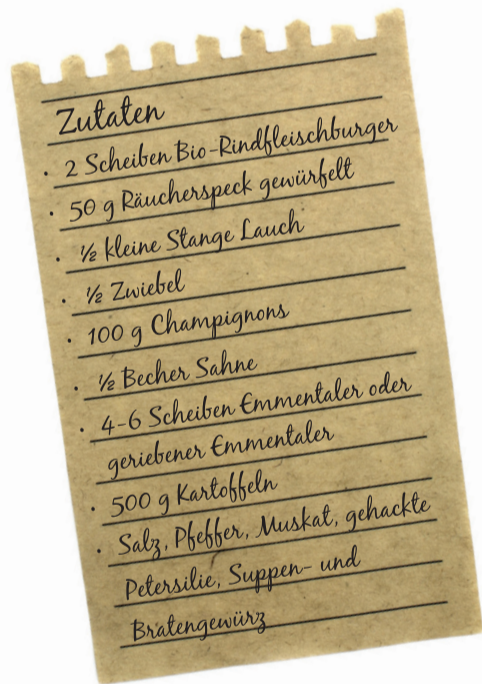 Zutaten
· 2 Scheiben Bio-Rindfleischburger
· 50 g Räucherspeck gewürfelt
· ½ kleine Stange Lauch
· ½ Zwiebel
· 100 g Champignons
· ½ Becher Sahne
· 4-6 Scheiben Emmentaler oder
geriebener Emmentaler
· 500 g Kartoffeln
· Salz, Pfeffer, Muskat, gehackte
Petersilie, Suppen- und
Bratengewürz